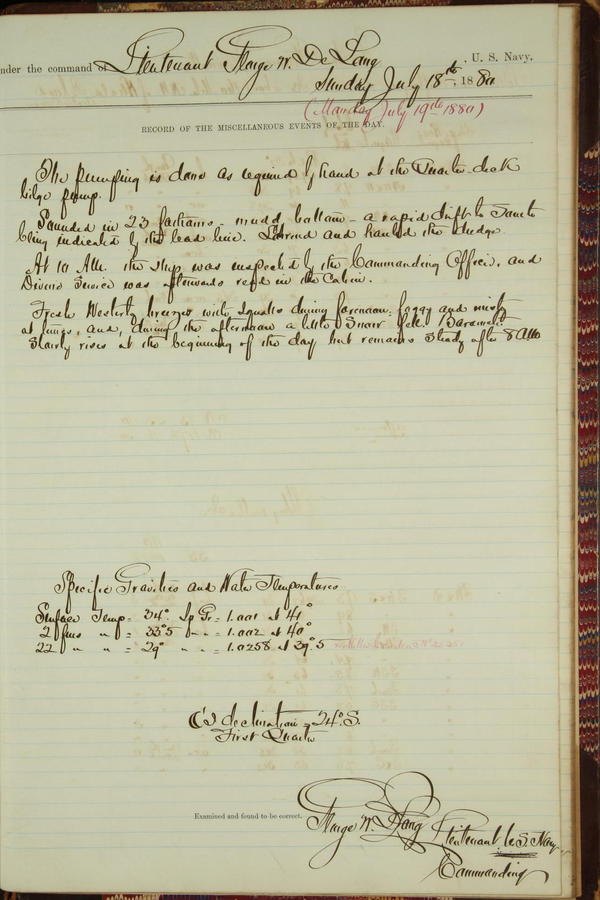 under the command of Lieutenant George W. De Long, U. S. Navy,
Sunday July 18th, 1880
(Monday July 19th 1880)
RECORD OF THE MISCELLANEOUS EVENTS OF THE DAY.
The pumping is done as required by hand at the Quarter deck
bilge pump.
Sounded in 23 fathoms - mudd bottom - a rapid drift to South
being indicated by the lead line. Lowered and hauled the dredge
At 10 AM. the ship was inspected by the Commanding Officer, and
Divine Service was afterwards read in the Cabin.
Fresh Westerly breezes with squalls during forenoon: foggy and misty
at times, and, during the afternoon a little Snow fell. Barometer
slowly rises at the beginning of the day but remains steady after 8 AM
Specific Gravities and Water Temperatures
Surface Temp = 34° Sp Gr = 1.001 at 41°
2 fms " = 33°5 " " = 1.002 at 40°
22 " " = 29° " " = 1.0258 at 39°.5
declination = 24° S.
First Quarter
Examined and found to be correct.
George W. De Long Lieutenant U.S. Navy
Commanding